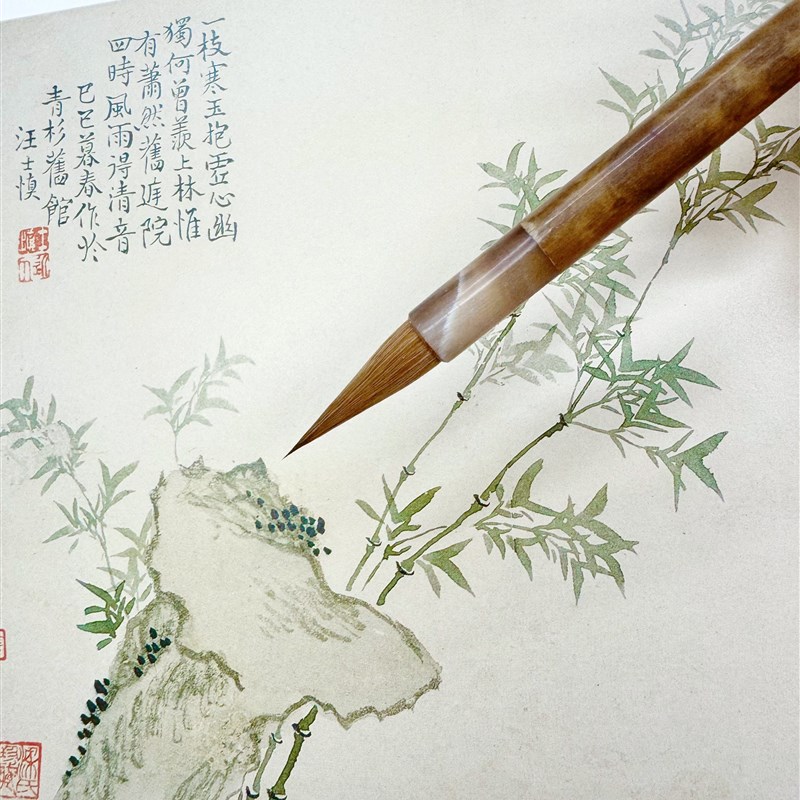 一枝寒玉抱虛心幽
獨何曾羨上林惟
有蕭然舊庭院
四時風雨得清音
己巳暮春作於
青杉舊館
汪士慎